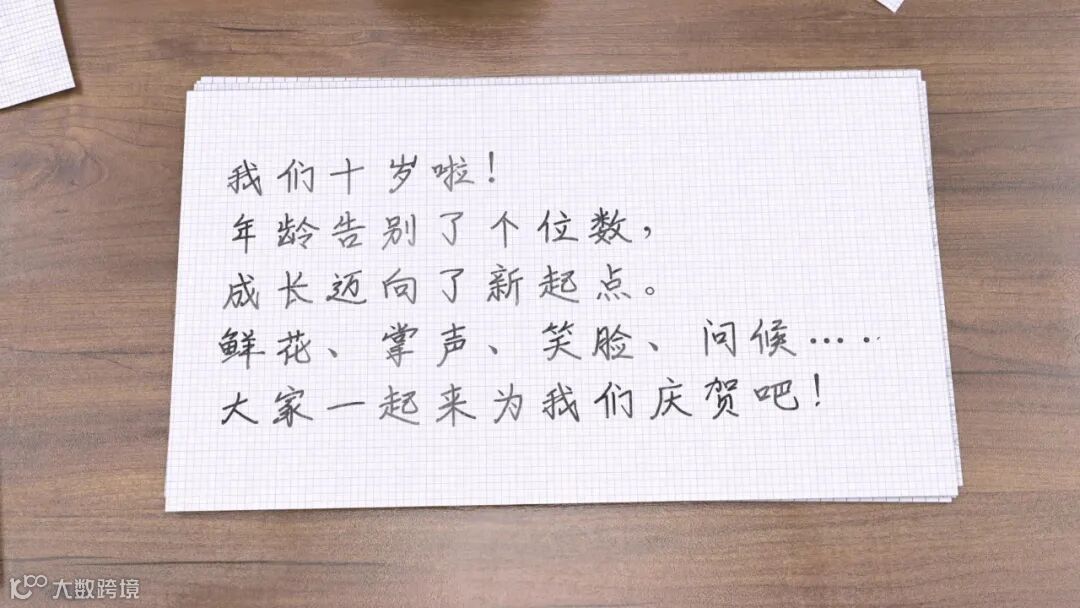 我们十岁啦！
年龄告别了个位数，
成长迈向了新起点。
鲜花、掌声、笑脸、问候……
大家一起来为我们庆贺吧！
大数跨境